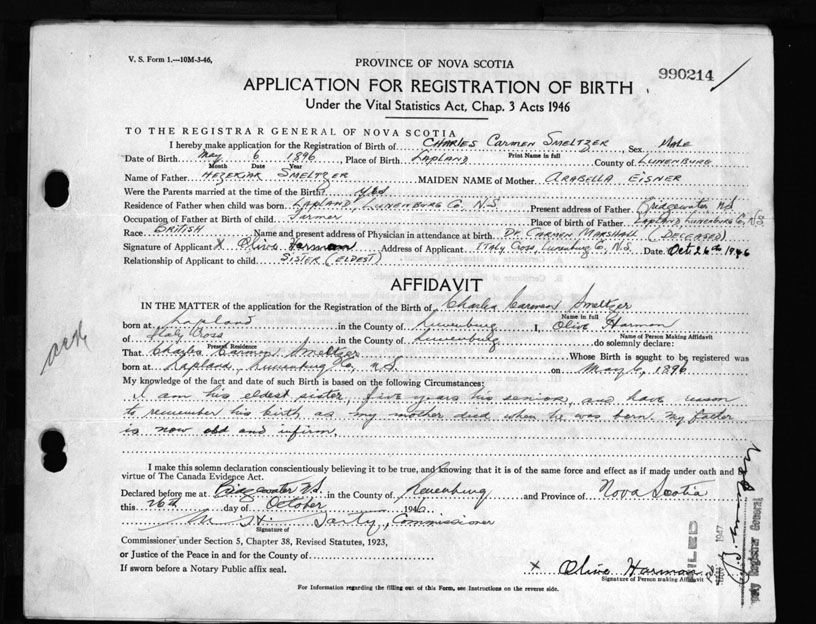 V. S. Form 1.—10M-3-46,
PROVINCE OF NOVA SCOTIA
990214
APPLICATION FOR REGISTRATION OF BIRTH
Under the Vital Statistics Act, Chap. 3 Acts 1946
TO THE REGISTRAR GENERAL OF NOVA SCOTIA
I hereby make application for the Registration of Birth of CHARLES CARMEN SMELTZER Sex Male
Print Name in full
Date of Birth May 6 1896 Place of Birth LAPLAND County of LUNENBURG
Month Date Year
Name of Father HEZEKIAH SMELTZER MAIDEN NAME of Mother ARABELLA EISNER
Were the Parents married at the time of the Birth? Yes
Residence of Father when child was born LAPLAND, LUNENBURG Co. N.S. Present address of Father Bridgewater N.S.
Occupation of Father at Birth of child Farmer Place of birth of Father LAPLAND, LUNENBURG Co, N.S.
Race BRITISH Name and present address of Physician in attendance at birth DR. CARMEN MARSHALL (DECEASED)
Signature of Applicant X Olive Harman Address of Applicant ITALY CROSS, LUNENBURG Co, N.S. Date Oct 26th 1946
Relationship of Applicant to child SISTER (ELDEST)
AFFIDAVIT
IN THE MATTER of the application for the Registration of the Birth of Charles Carmen Smeltzer
Name in full
born at Lapland in the County of Lunenburg I, Olive Harman
Name of Person Making Affidavit
of Italy Cross in the County of Lunenburg do solemnly declare:
Present Residence
That Charles Carmen Smeltzer Whose Birth is sought to be registered was
born at Lapland, Lunenburg Co, N.S. on May 6, 1896
My knowledge of the fact and date of such Birth is based on the following Circumstances:
I am his eldest sister, five years his senior, and have reason
to remember his birth as my mother died when he was born. My father
is now old and infirm.
I make this solemn declaration conscientiously believing it to be true, and knowing that it is of the same force and effect as if made under oath and by
virtue of The Canada Evidence Act.
Declared before me at Bridgewater N.S. in the County of Lunenburg and Province of Nova Scotia
this 26th day of October 1946
Commissioner
Signature of
Commissioner under Section 5, Chapter 38, Revised Statutes, 1923,
or Justice of the Peace in and for the County of
If sworn before a Notary Public affix seal.
X Olive Harman
Signature of Person making Affidavit
For Information regarding the filling out of this Form, see Instructions on the reverse side.
FILED
1947
Registrar General